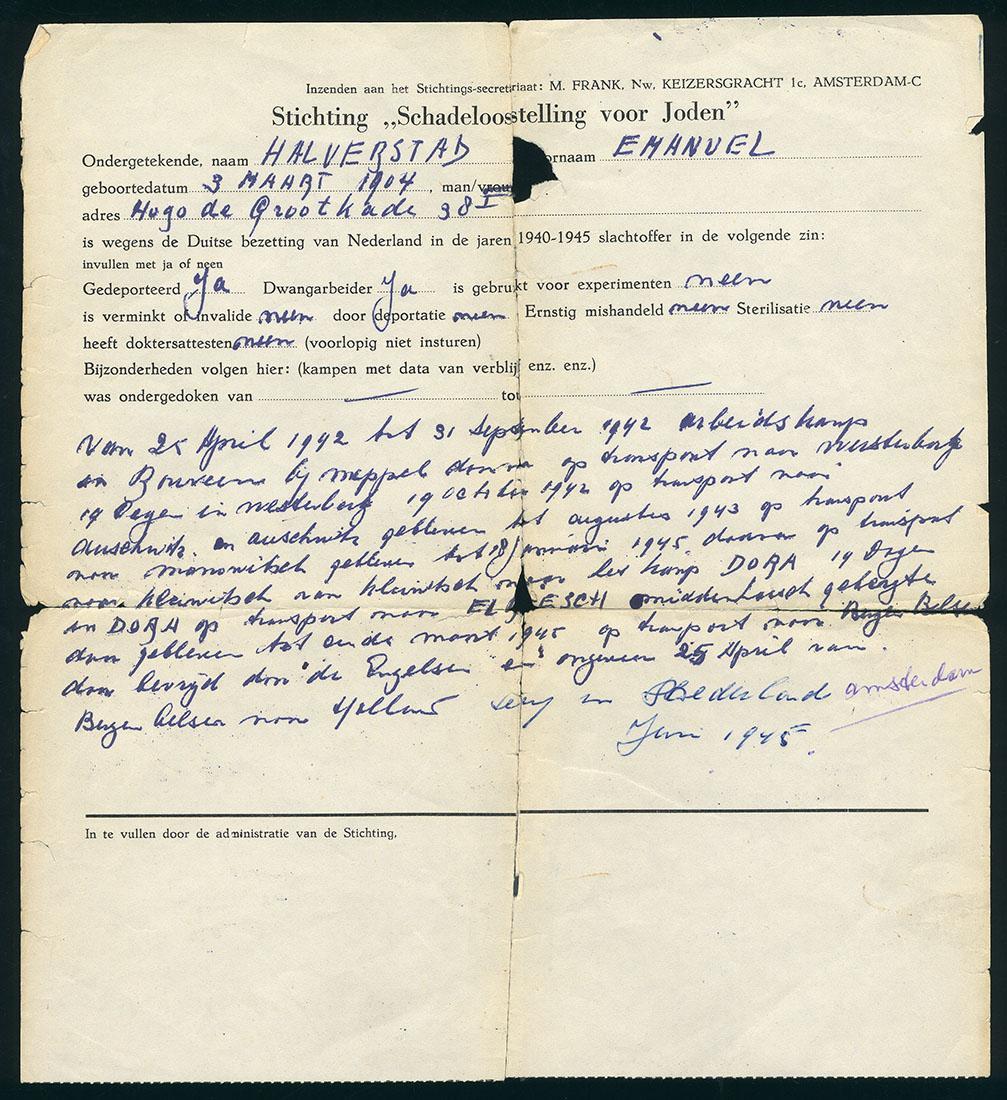 Inzenden aan het Stichtings-secretariaat: M. FRANK, Nw. KEIZERSGRACHT 1c, AMSTERDAM-C
Stichting „Schadeloosstelling voor Joden”
Ondergetekende, naam HALVERSTAD oornaam EMANUEL
geboortedatum 3 MAART 1904, man/vrou
adres Hugo de Grootkade 38 I
is wegens de Duitse bezetting van Nederland in de jaren 1940-1945 slachtoffer in de volgende zin:
invullen met ja of neen
Gedeporteerd Ja Dwangarbeider Ja is gebruikt voor experimenten neen
is verminkt of invalide neen door deportatie neen Ernstig mishandeld neen Sterilisatie neen
heeft doktersattesten neen (voorlopig niet insturen)
Bijzonderheden volgen hier: (kampen met data van verblijf enz. enz.)
was ondergedoken van — tot —
Van 25 April 1942 tot 31 September 1942 arbeidskamp
in bij Meppel op transport naar Westerbork
19 Dagen in Westerbork 19 October 1942 op transport naar
Auschwitz. in auschwitz gebleven tot augustus 1943 op transport
naar monowitsch gebleven tot 18 Januari 1945. daarna op transport
naar kleiwitsch van kleiwitsch naar het kamp DORA 14 Dagen
in DORA op transport naar ESCH middenharsch gebergte
daar gebleven tot einde maart 1945 op transport naar Bergen Belse
daar bevrijd door de Engelsen en ongeveer 25 April van
Bergen belsen naar Holland terug in Nederland amsterdam
Juni 1945.
In te vullen door de administratie van de Stichting.